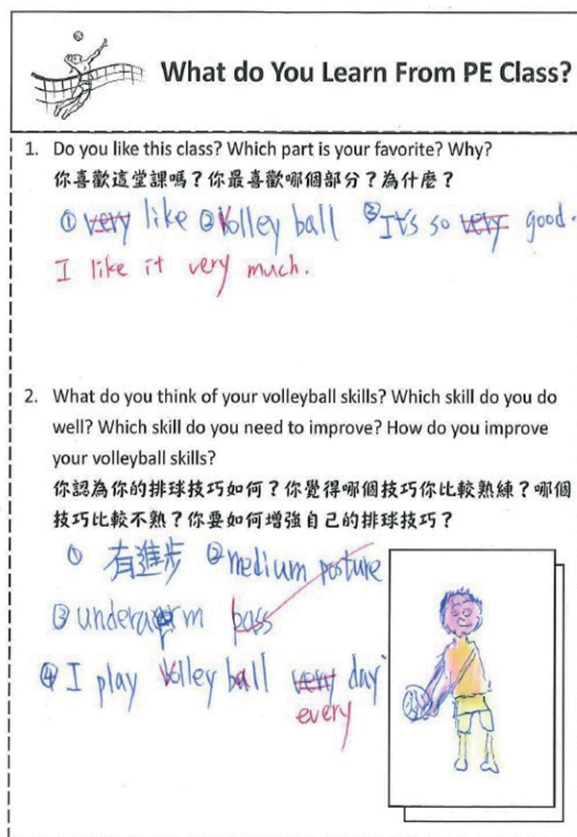 What do You Learn From PE Class?
1. Do you like this class? Which part is your favorite? Why?
你喜歡這堂課嗎？你最喜歡哪個部分？為什麼？
① very like ② Volley ball ③ It's so very good.
I like it very much.
2. What do you think of your volleyball skills? Which skill do you do
well? Which skill do you need to improve? How do you improve
your volleyball skills?
你認為你的排球技巧如何？你覺得哪個技巧你比較熟練？哪個
技巧比較不熟？你要如何增強自己的排球技巧？
① 有進步 ② medium posture
③ underarm pass
④ I play Volley ball very day
every